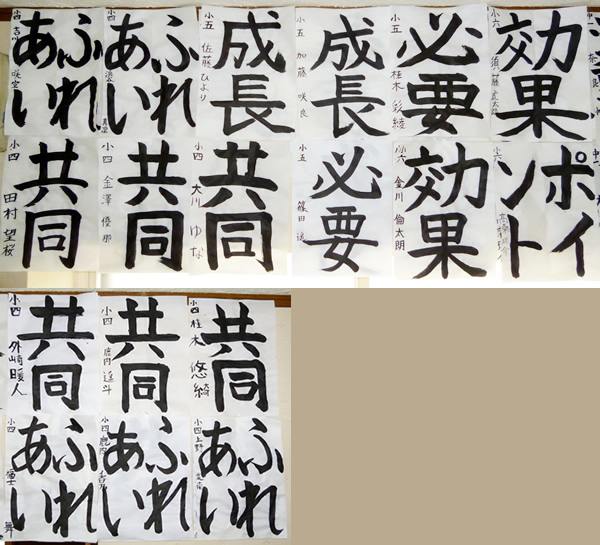 小四
ふれ
あい
小四
ふれ
あい
小五 佐藤ひより
成長
小五 加藤 咲良
成長
小六 桂木 彩綾
必要
小六
効果
小四 田村 望桜
共同
小四 金澤 優那
共同
小四 大川 ゆな
共同
小五 篠田
必要
小六 金川 倫太朗
効果
小六
ポイ
ント
小四 外崎暖人
共同
小四
共同
小四 桂木 悠綺
共同
小四
ふれ
あい
小四
ふれ
あい
小四 上野
ふれ
あい